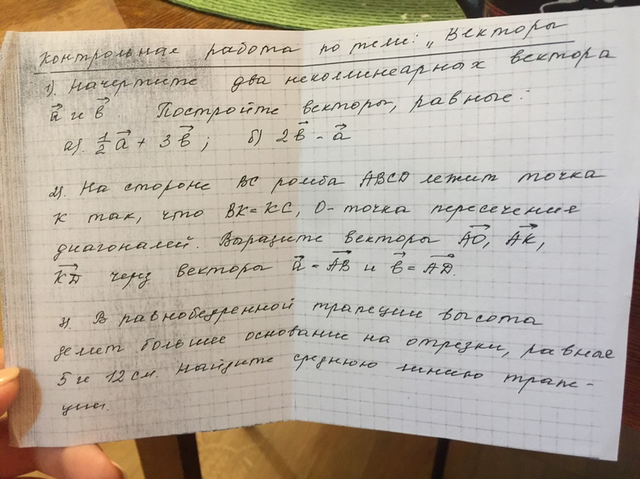 контрольная работа по теме: „Векторы
1). Начертите два неколлинеарных вектора
a⃗ и b⃗. Постройте векторы, равные:
а). 1/2 a⃗ + 3b⃗; б) 2b⃗ - a⃗
2). На стороне BC ромба ABCD лежит точка
K так, что BK=KC, O-точка пересечения
диагоналей. Выразите векторы AO⃗, AK⃗,
KD⃗ через векторы a⃗ = AB⃗ и b⃗ = AD⃗.
3). В равнобедренной трапеции высота
делит большее основание на отрезки, равные
5 и 12 см. Найдите среднюю линию трапе-
ции.